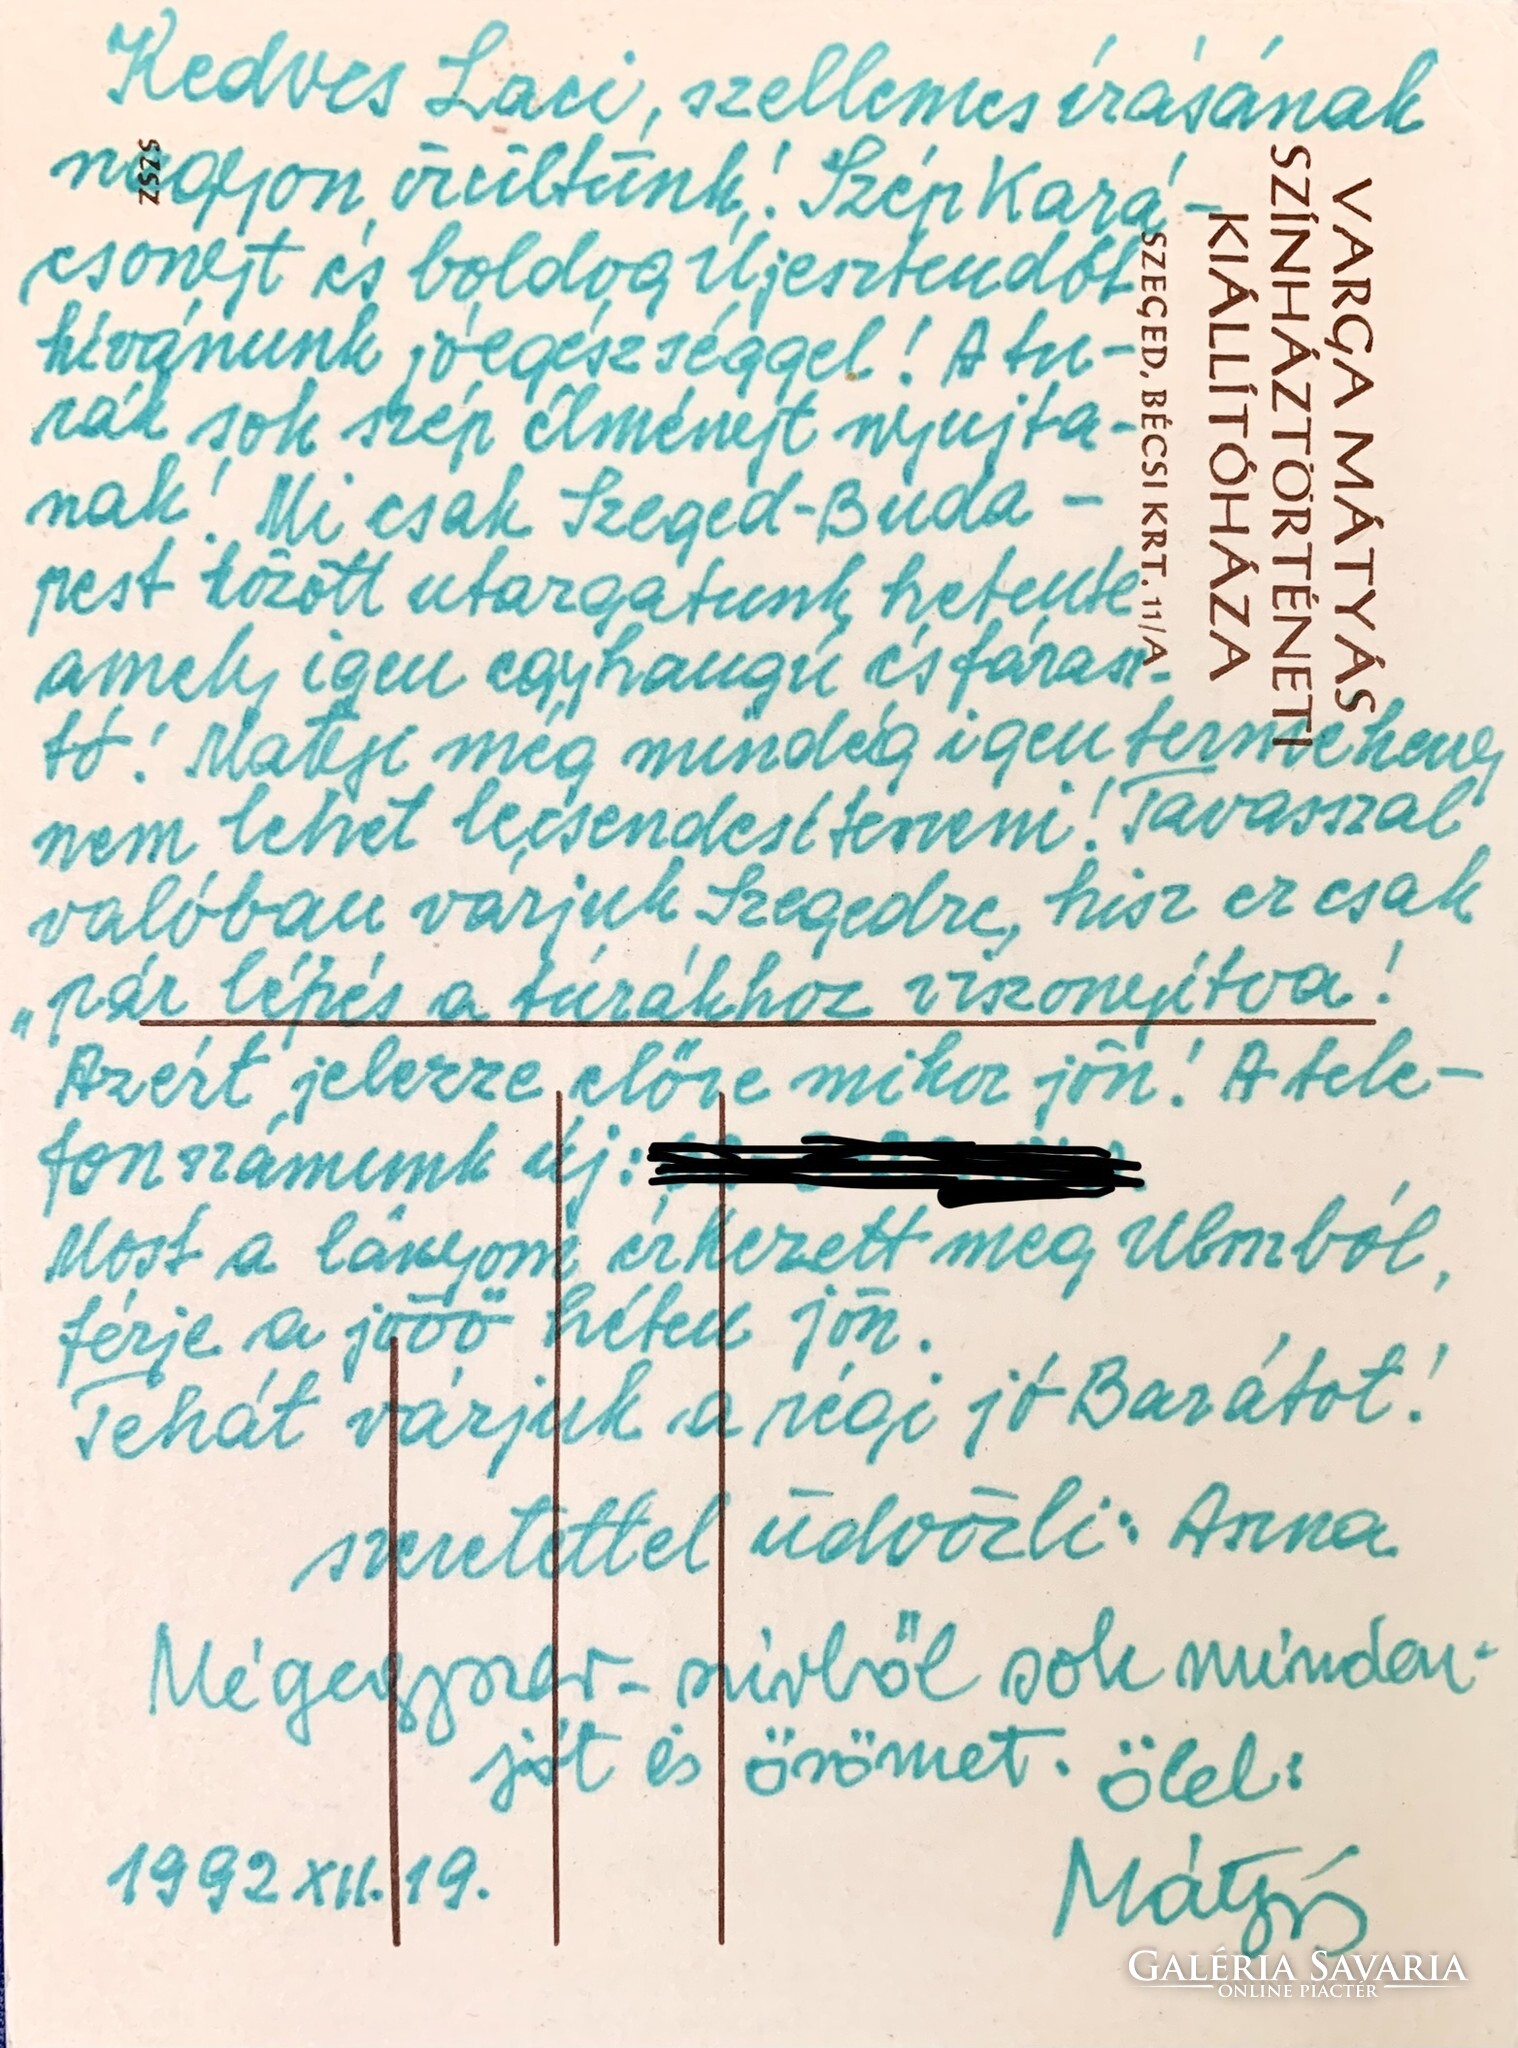 Kedves Laci, szellemes írásának
nagyon örültünk! Szép Kará-
csonyt és boldog Újesztendőt
kívánunk jóegészséggel! A tu-
rák sok szép élményt nyujta-
nak! Mi csak Szeged-Buda-
pest között utazgatunk hetente
amely igen egyhangú és fárasz-
tó! Matyi még mindég igen termékeny
nem lehet lecsendesíteni! Tavasszal
valóban várjuk Szegedre, hisz ez csak
„pár lépés a túrákhoz viszonyítva!
Azért jelezze előre mikor jön! A tele-
fonszámunk új:
Most a lányom érkezett meg Ulmból,
férje a jövő héten jön.
Tehát várjuk a régi jó Barátot!
szeretettel üdvözli: Anna
Mégegyszer - szivből sok minden
jót és örömet. Ölel:
Mátyás
1992 XII. 19.
VARGA MÁTYÁS
SZÍNHÁZTÖRTÉNETI
KIÁLLÍTÓHÁZA
SZEGED, BÉCSI KRT. 11/A
SZSZ
GALÉRIA SAVARIA
ONLINE PIACTÉR